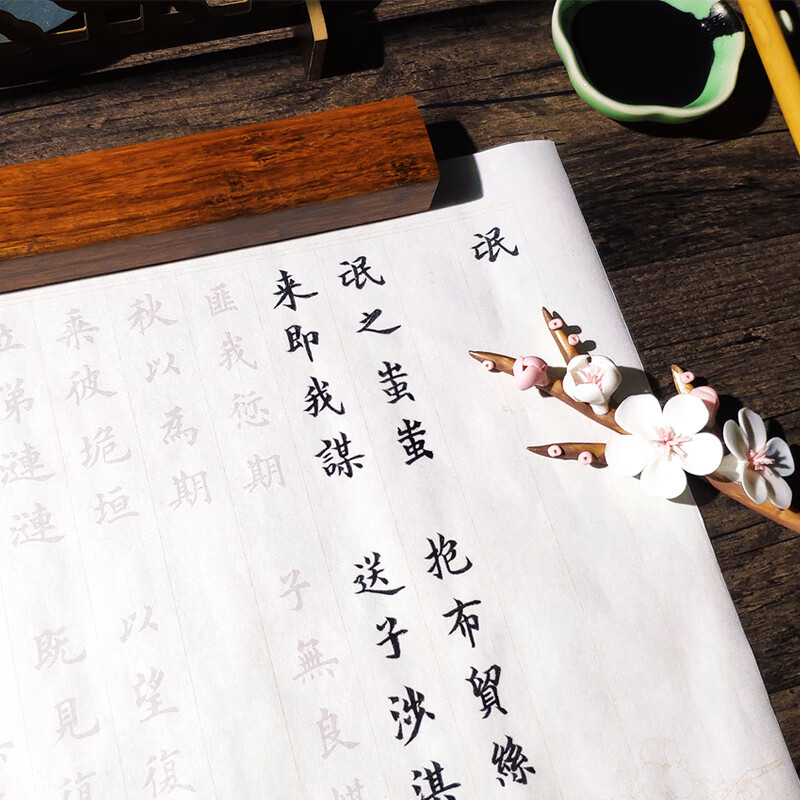 氓
氓之蚩蚩 抱布貿絲
来即我謀 送子涉淇
匪我愆期 子無良
秋以為期
乘彼垝垣 以望復
漣漣 既見